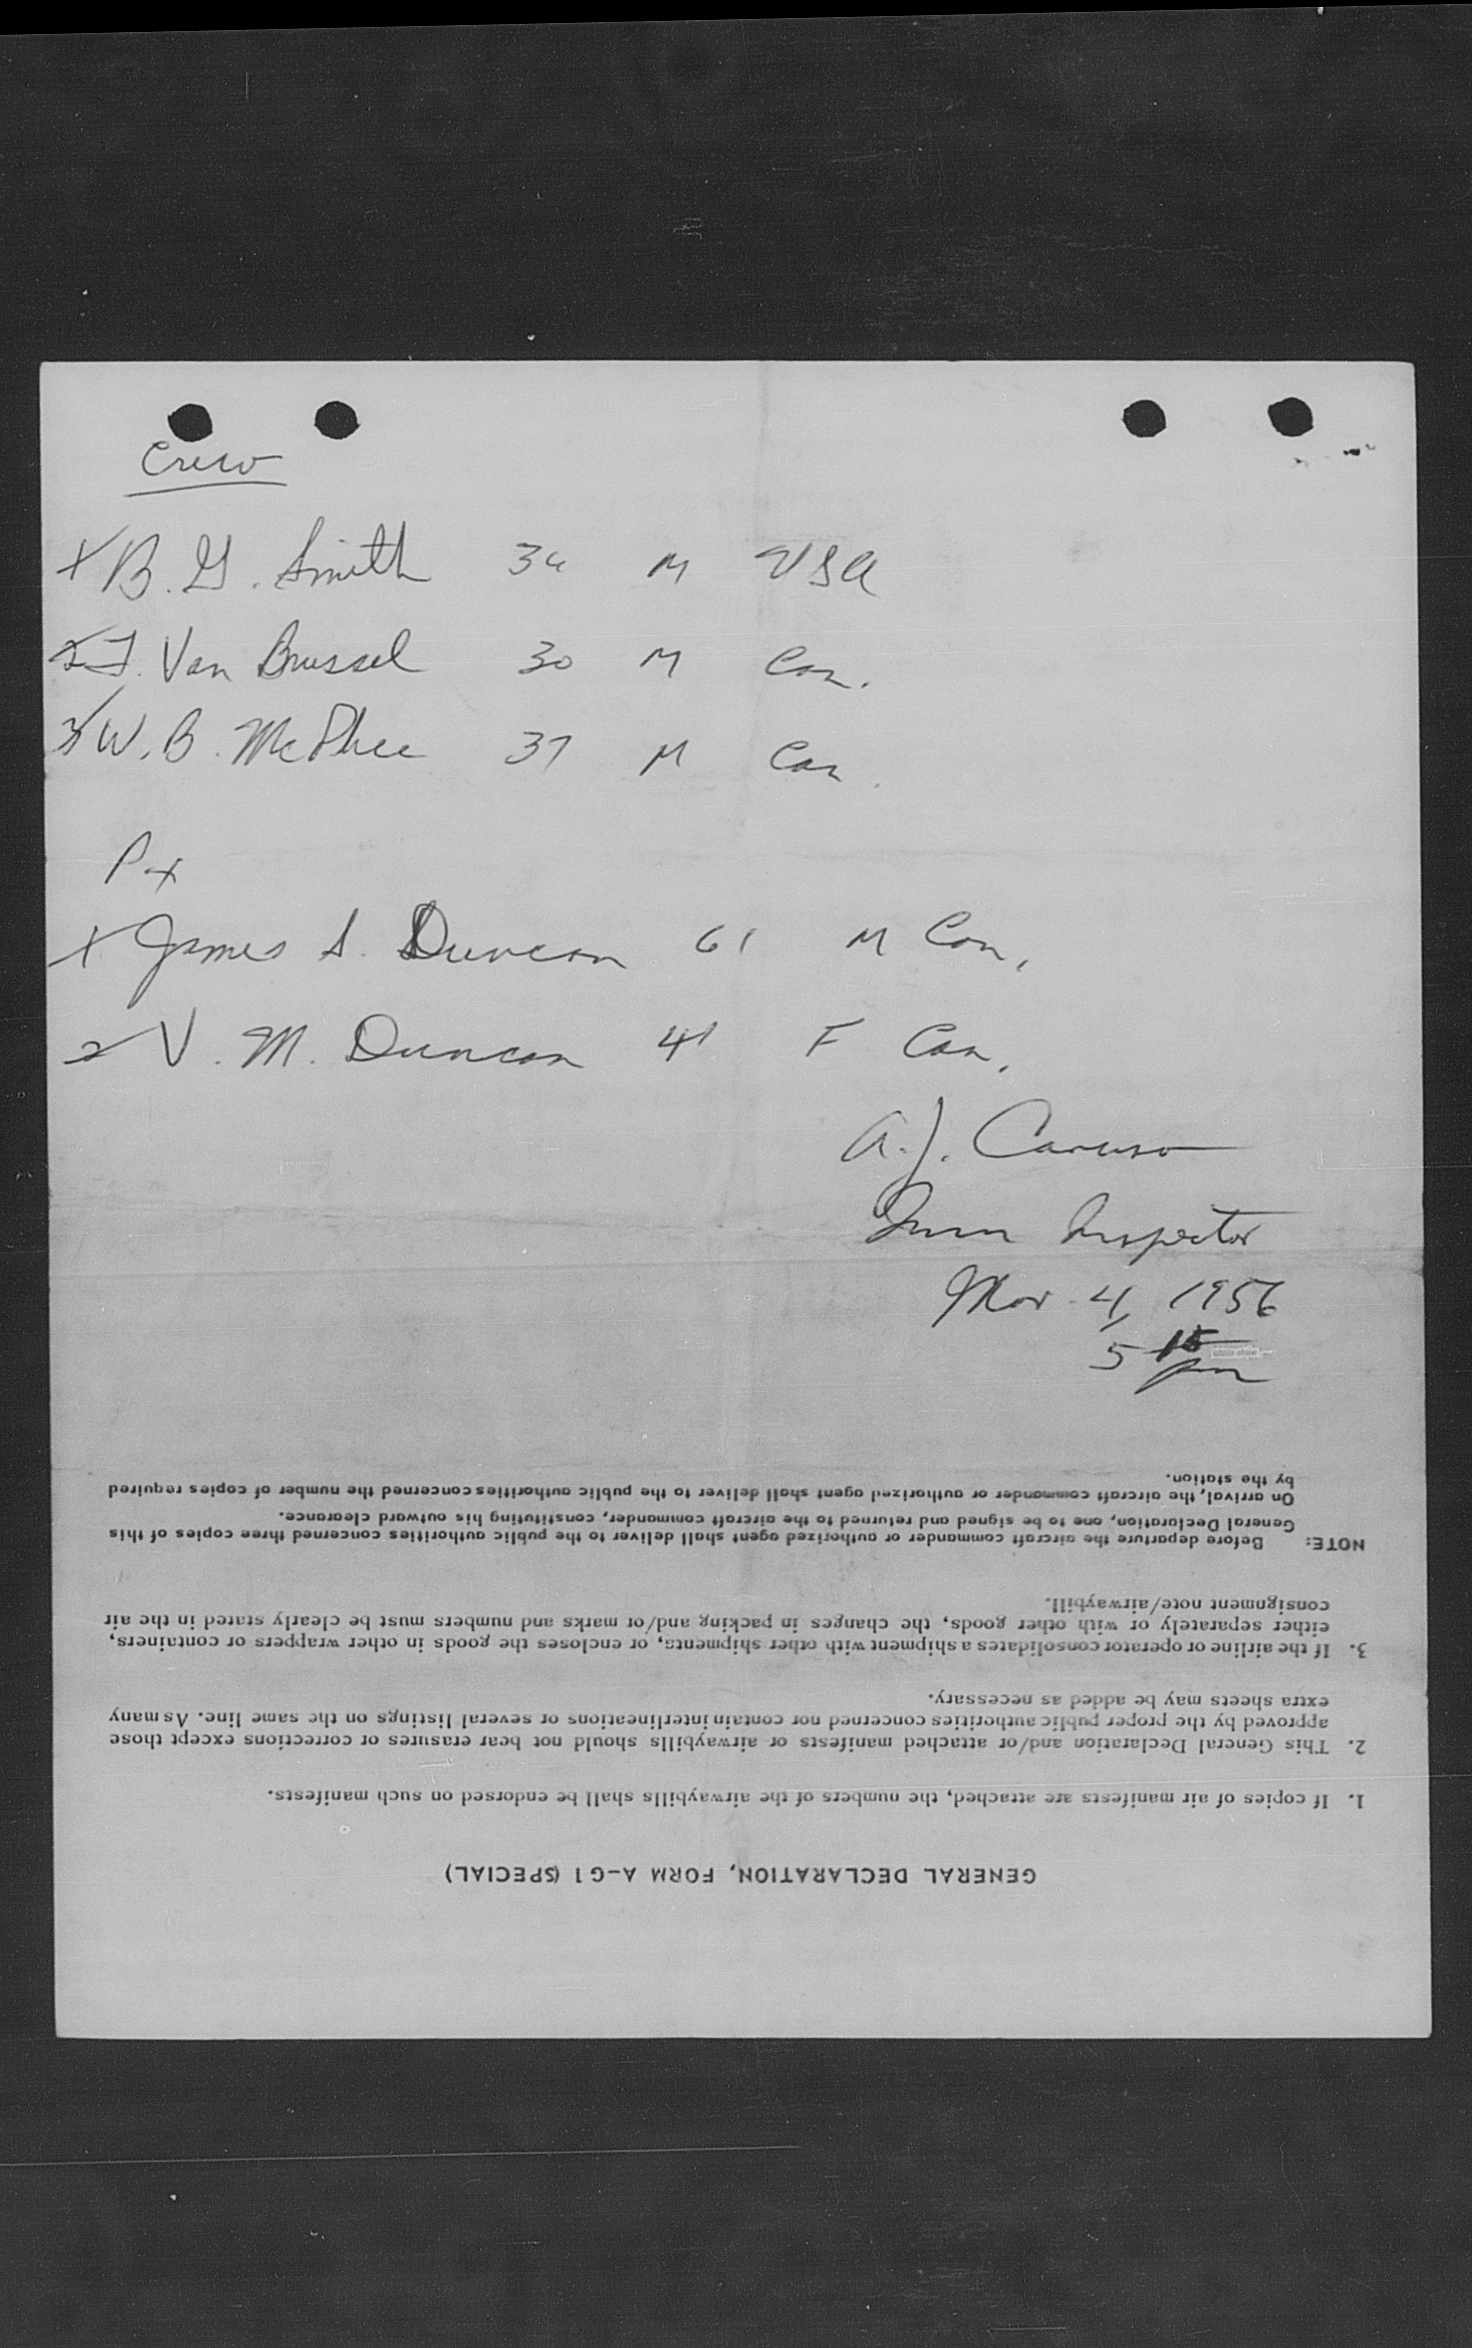 Crew
1 B. G. Smith 34 M USA
2 J. Van Brussel 30 M Can.
3 W. B. McPhee 37 M Can.
Px
1 James S. Duncan 61 M Can.
2 V. M. Duncan 41 F Can.
A. J. Caruso
Imm Inspector
Mar. 4, 1956
5 15 pm
GENERAL DECLARATION, FORM A-G1 (SPECIAL)
1. If copies of air manifests are attached, the numbers of the airwaybills shall be endorsed on such manifests.
2. This General Declaration and/or attached manifests or airwaybills should not bear erasures or corrections except those
approved by the proper public authorities concerned nor contain interlineations or several listings on the same line. As many
extra sheets may be added as necessary.
3. If the airline or operator consolidates a shipment with other shipments, or encloses the goods in other wrappers or containers,
either separately or with other goods, the changes in packing and/or marks and numbers must be clearly stated in the air
consignment note/airwaybill.
NOTE: Before departure the aircraft commander or authorized agent shall deliver to the public authorities concerned three copies of this
General Declaration, one to be signed and returned to the aircraft commander, constituting his outward clearance.
On arrival, the aircraft commander or authorized agent shall deliver to the public authorities concerned the number of copies required
by the station.